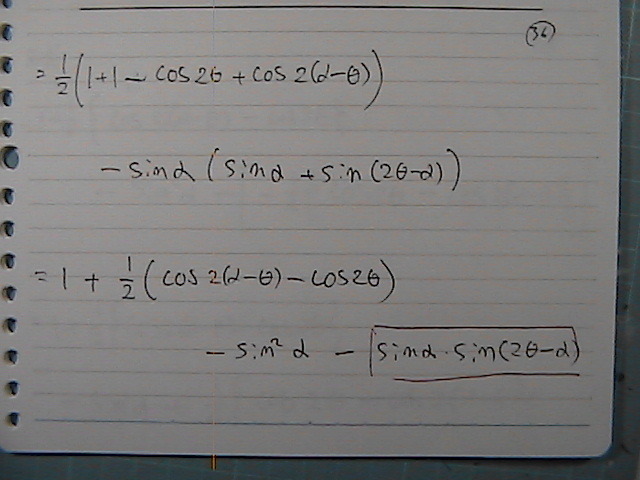 (36)
= 1/2 (1+1 − cos2θ + cos2(α−θ))
− sinα (sinα + sin(2θ−α))
= 1 + 1/2 (cos2(α−θ) − cos2θ)
− sin²α − sinα・sin(2θ−α)